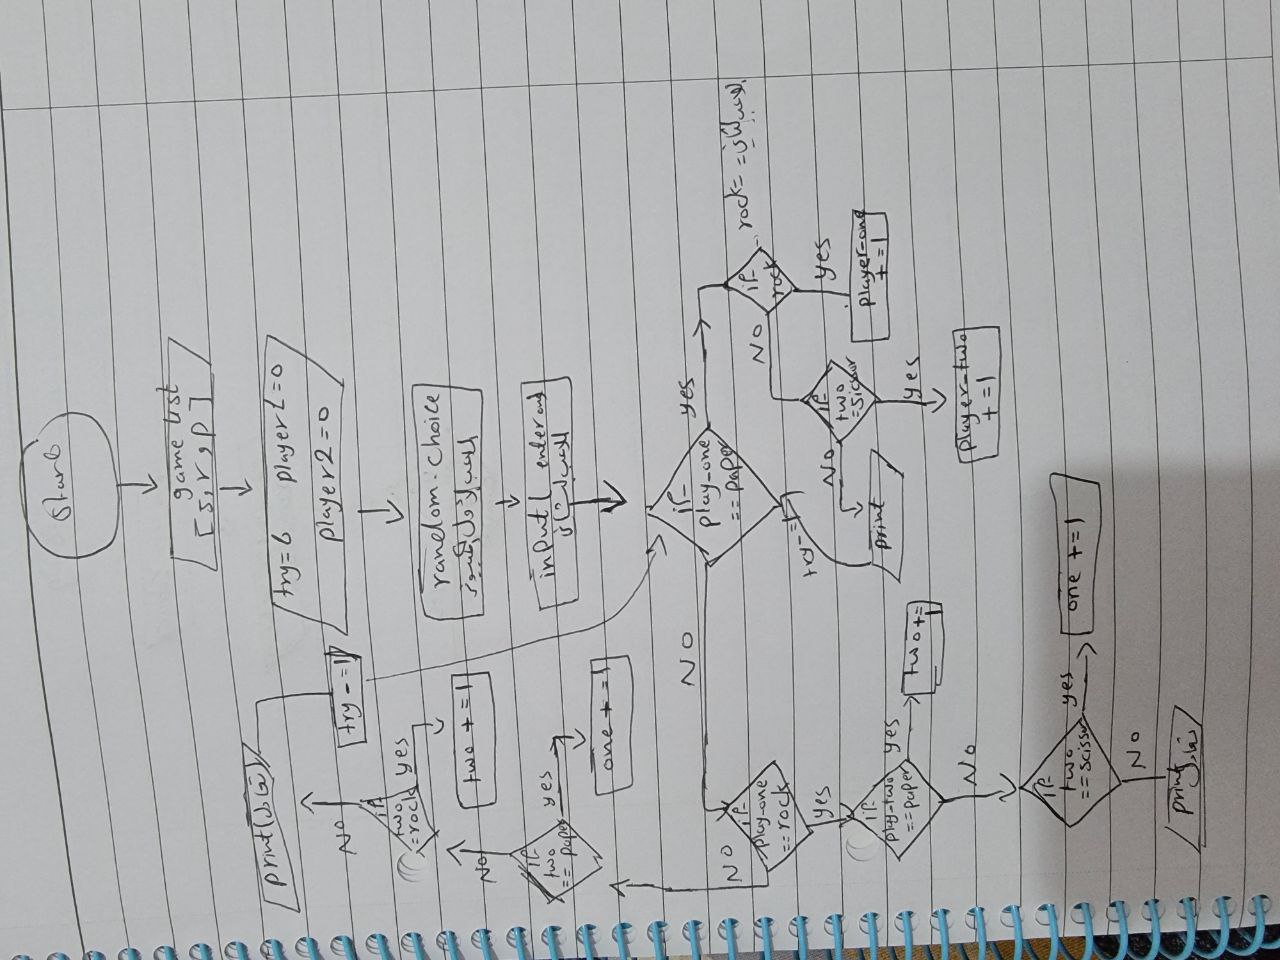 Start
game list
[s,r,p]
try=6 player1=0
player2=0
random.choice
input enter
if
play-one
== paper
yes
No
if
rock
rock=
No
yes
player-one
+=1
if
two
=sicsur
yes
player-two
+=1
No
print
try-=1
if
play-one
== rock
yes
No
if
play-two
== paper
yes
two +=
1
No
if
two
== scissur
yes
one +=1
No
print
if
two
== paper
yes
one +=1
No
if
two
=rock
yes
two +=1
No
print(
try-=1